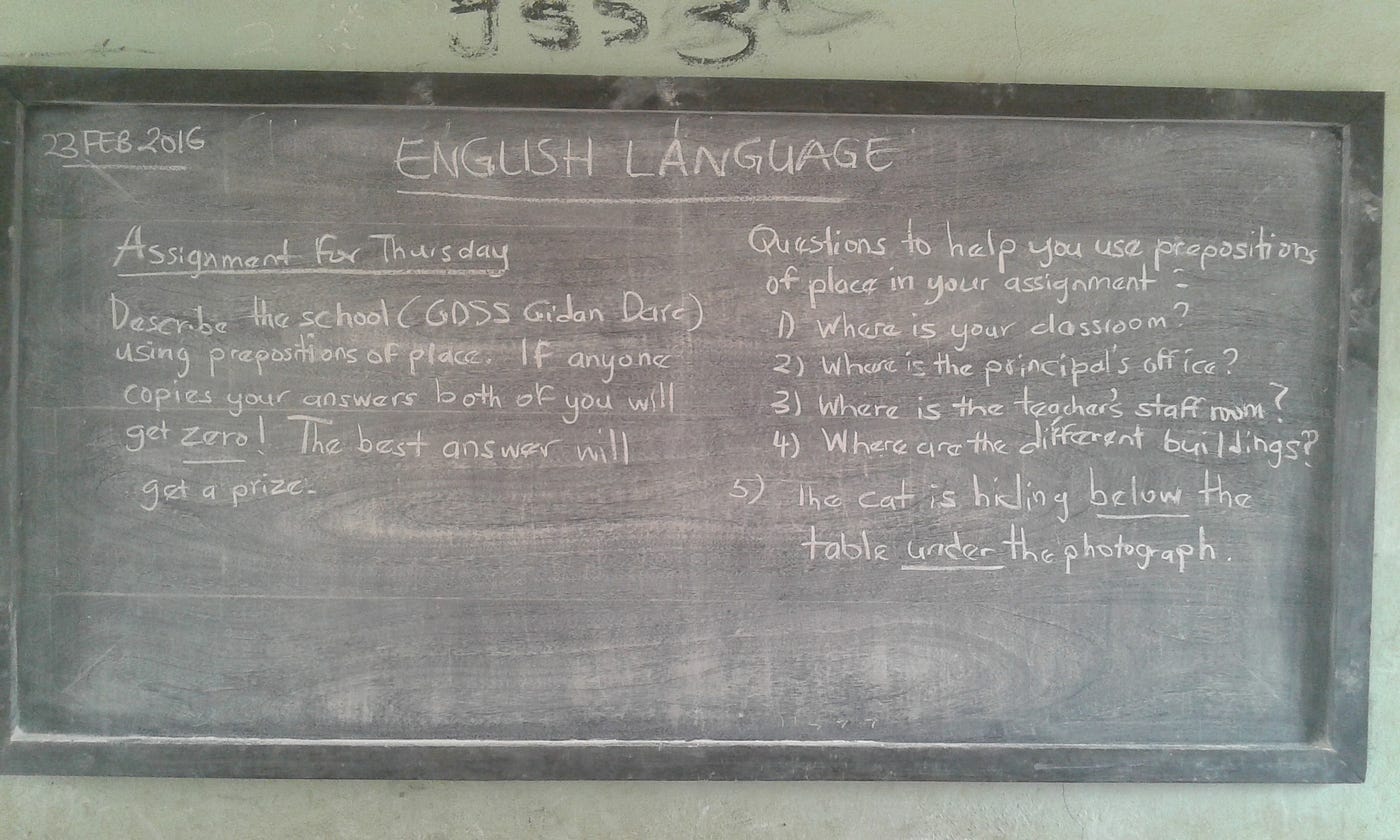 JSS 3
23 FEB 2016
ENGLISH LANGUAGE
Assignment for Thursday
Describe the school (GDSS Gidan Dare)
using prepositions of place. If anyone
copies your answers both of you will
get zero! The best answer will
get a prize.
Questions to help you use prepositions
of place in your assignment :
1) Where is your classroom?
2) Where is the principal's office?
3) Where is the teacher's staff room?
4) Where are the different buildings?
5) The cat is hiding below the
table under the photograph.